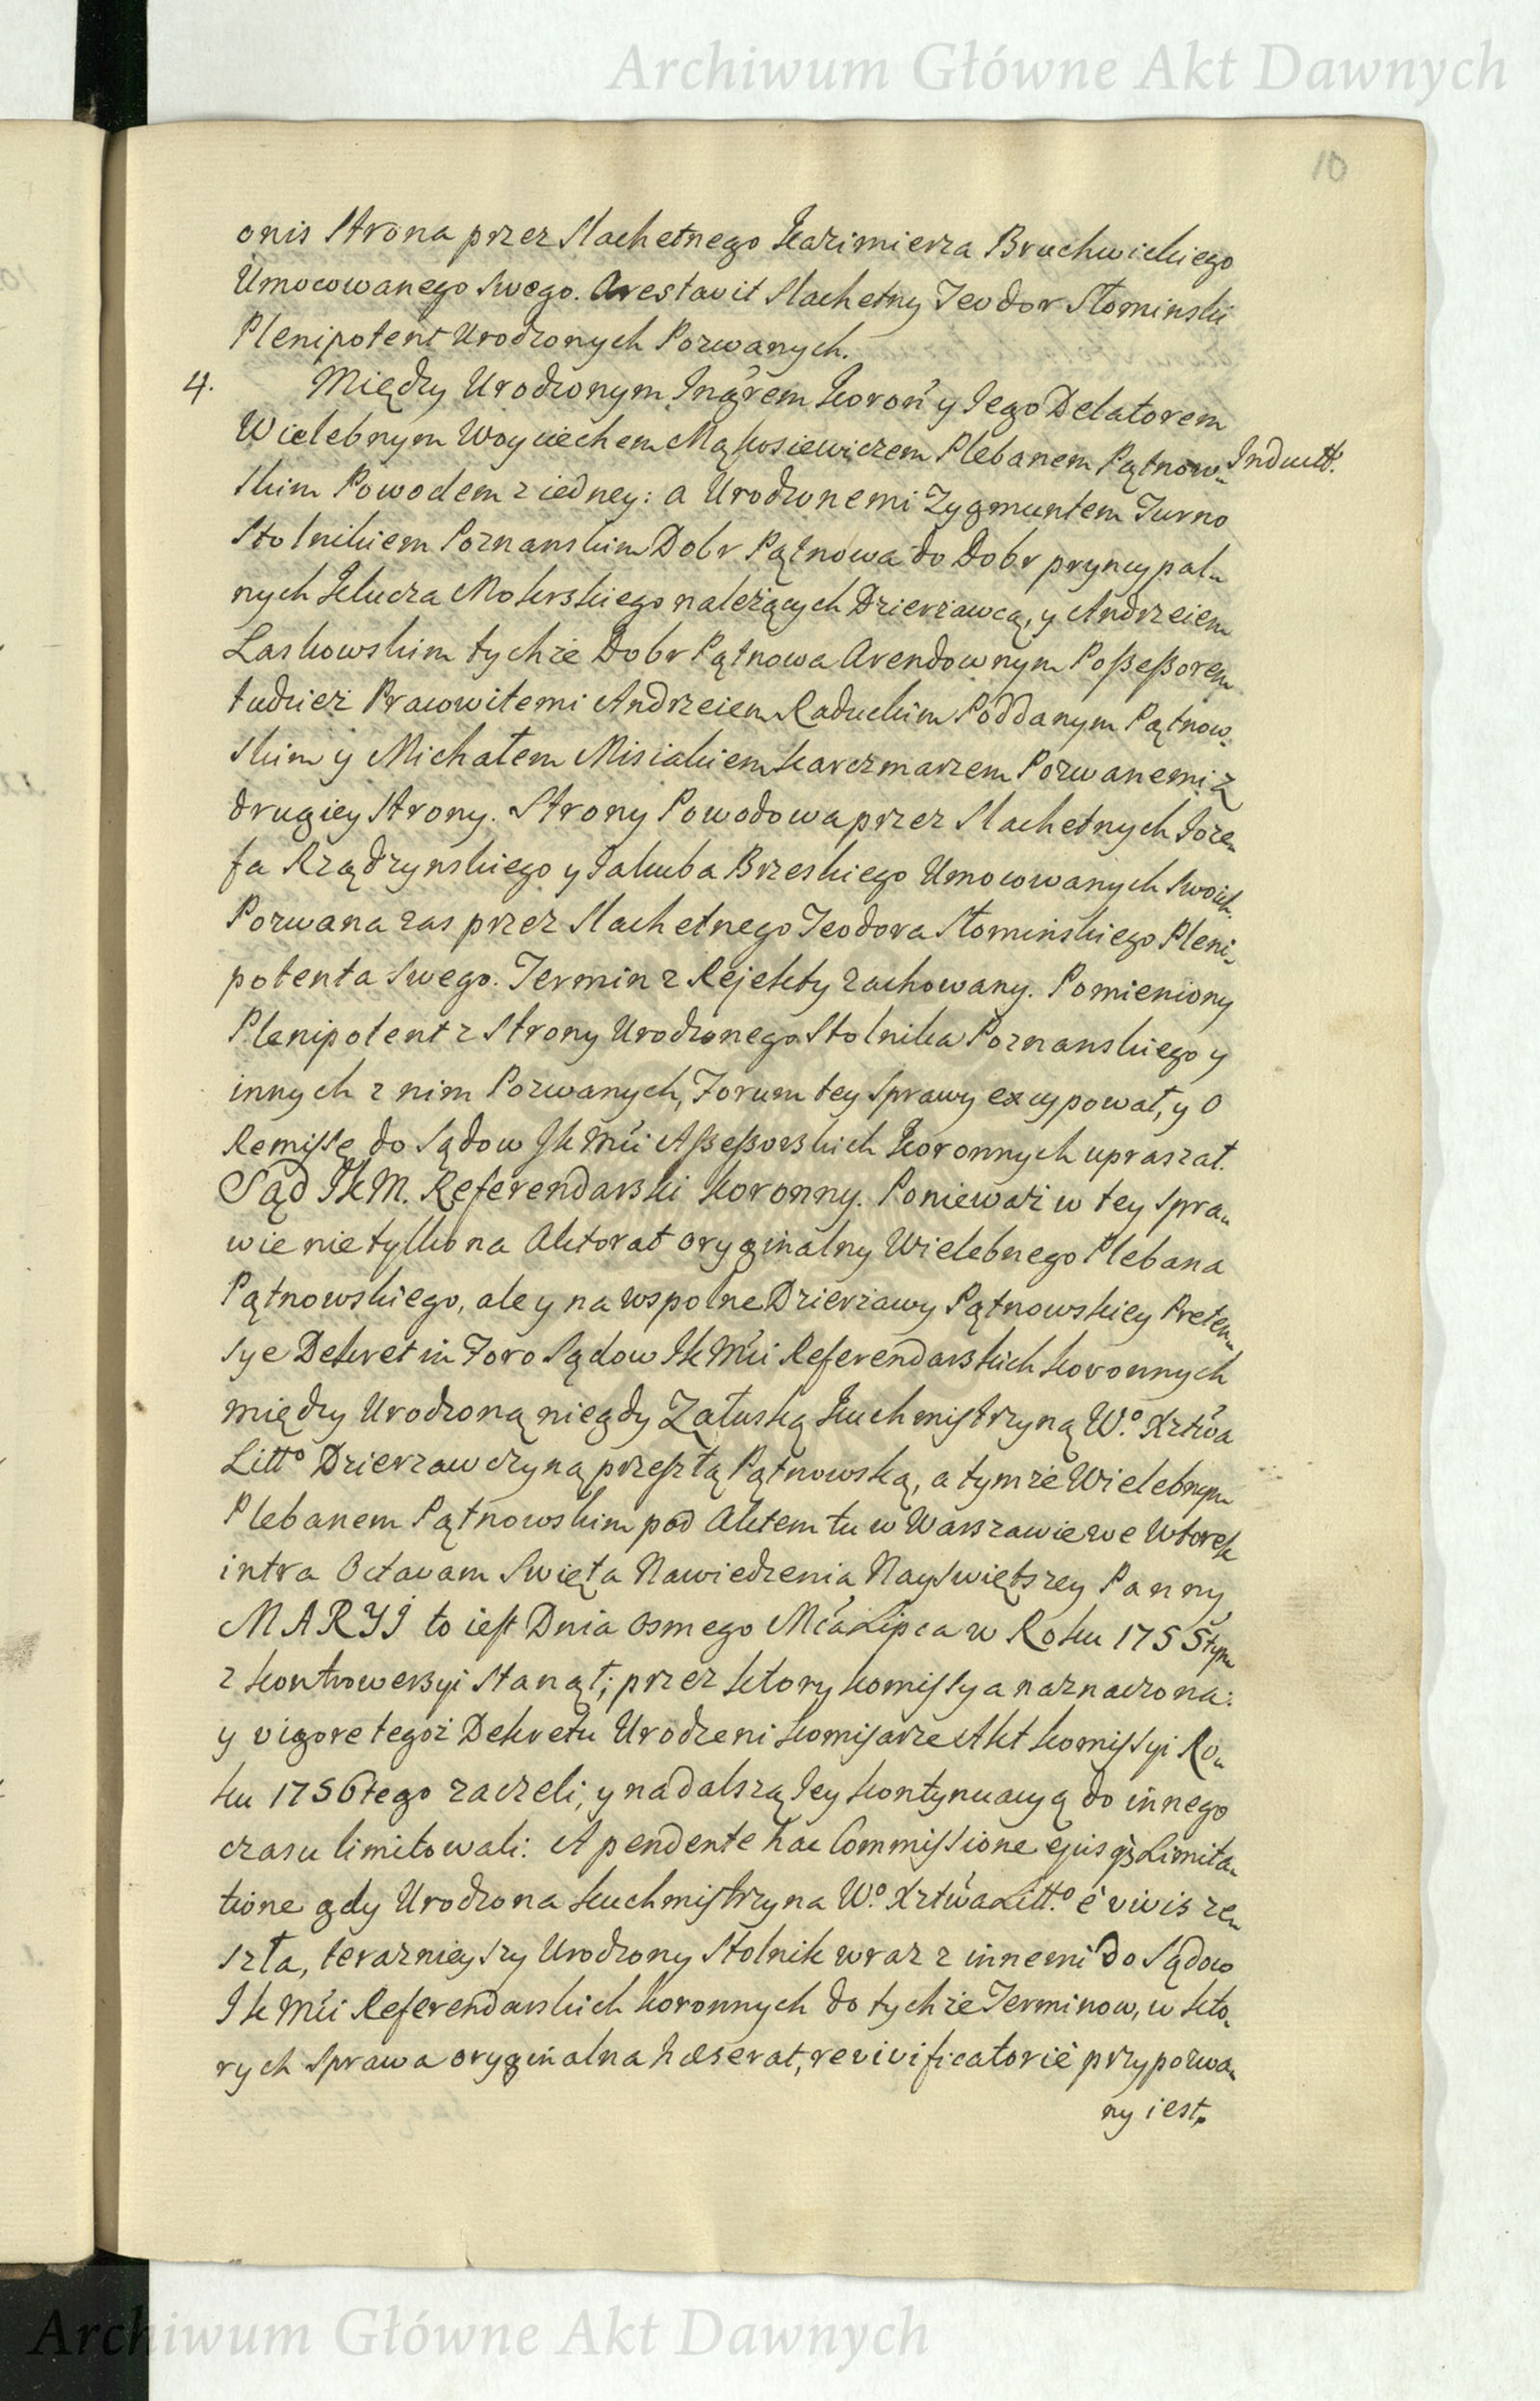 Archiwum Główne Akt Dawnych
10
onis Strona przez Slachetnego Kazimierza Bruchwickiego
Umocowanego Swego. Arestavit Slachetny Teodor Słominski
Plenipotent Urodzonych Pozwanych.
4. Między Urodzonym Ingrem Koron y Jego Delatorem
Wielebnym Woyciechem Mąkosiewiczem Plebanem Pątnow„ Inductt.
skim Powodem z iedney: a Urodzonemi Zygmuntem Turno
Stolnikiem Poznanskim Dobr Pątnowa do Dobr pryncypal„
nych Klucza Mokrskiego należących Dzierżawcą, y Andrzeiem
Laskowskim tychże Dobr Pątnowa Arendownym Poßeßorem
tudzież Pracowitemi Andrzeiem Raduckim Poddanym Pątnow„
skim y Michałem Misiakiem karczmarzem Pozwanemi z
drugiey Strony. Strony Powodowa przez Slachetnych Joze„
fa Rządzynskiego y Jakuba Brzeskiego Umocowanych Swoich.
Pozwana zas przez Slachetnego Teodora Słominskiego Pleni„
potenta Swego. Termin z Rejekty zachowany. Pomieniony
Plenipotent z Strony Urodzonego Stolnika Poznanskiego y
innych z nim Pozwanych, Forum tey Sprawy excypował, y o
Remissę do Sądow JK Mci Aßeßorskich Koronnych upraszał.
Sąd JKM. Referendarski Koronny. Poniewaz w tey Spra„
wie nie tylko na Aktorat oryginalny Wielebnego Plebana
Pątnowskiego, ale y na wspolne Dzierżawy Pątnowskiey Preten„
sye Dekret in Foro Sądow JK Mci Referendarskich Koronnych
między Urodzoną niegdy Załuską Kuchmistrzyną W.º Xztwa
Littº Dzierzawczyną przeszłą Pątnowską, a tymże Wielebnym
Plebanem Pątnowskim pod Aktem tu w Warszawie we Wtorek
intra Octavam Swięta Nawiedzenia Nayswiętszey Panny
MARYI to iest Dnia osmego Mca Lipca w Roku 1755tym
z kontrowersyi Stanął; przez ktory Komissya naznaczona:
y vigore tegoż Dekretu Urodzeni Komisarze Akt Komissyi Ro„
ku 1756tego zaczeli, y na dalszą Jey kontynuacyą do innego
czasu limitowali: A pendente hac Commissione ejusq3 Limita„
tione gdy Urodzona Kuchmistrzyna W.º Xztwa Litt.º è vivis ze„
szła, teraznieyszy Urodzony Stolnik wraz z innemi do Sądow
JK Mci Referendarskich Koronnych do tychże Terminow, w kto„
rych Sprawa oryginalna hæserat, revivificatoriè przypozwa„
ny iest,
Archiwum Główne Akt Dawnych